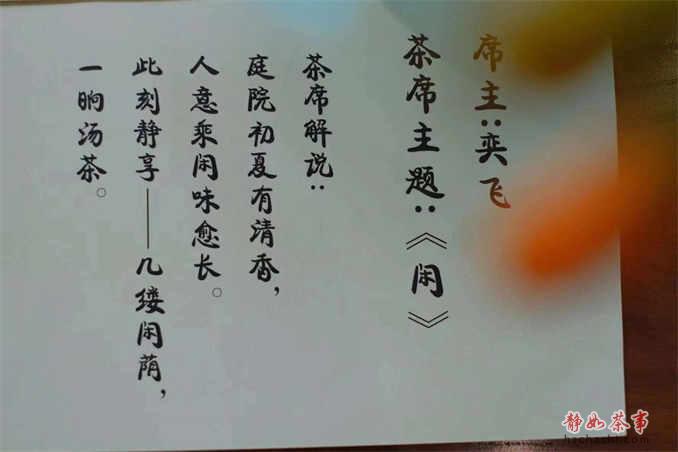 席主：奕飞
茶席主题：《闲》
茶席解说：
庭院初夏有清香，
人意乘闲味愈长。
此刻静享——几缕闲荫，
一晌汤茶。
静如茶事
hechashi.com